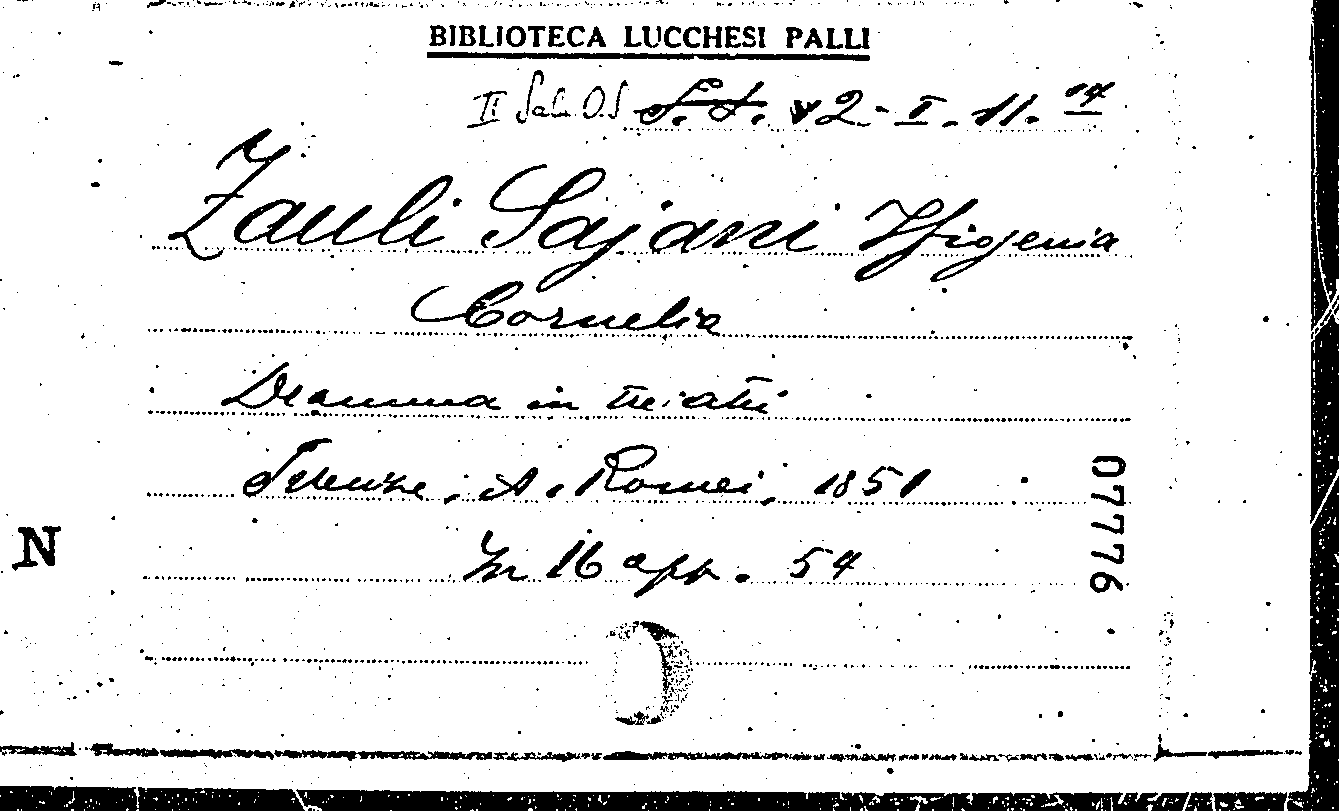 BIBLIOTECA LUCCHESI PALLI
II Sala O.S S.T. 2-I-11.
Zauli Sajani Ifigenia
Cornelia
Dramma in tre atti
Firenze, A. Romei, 1851
In 16° pp. 54
07776
N